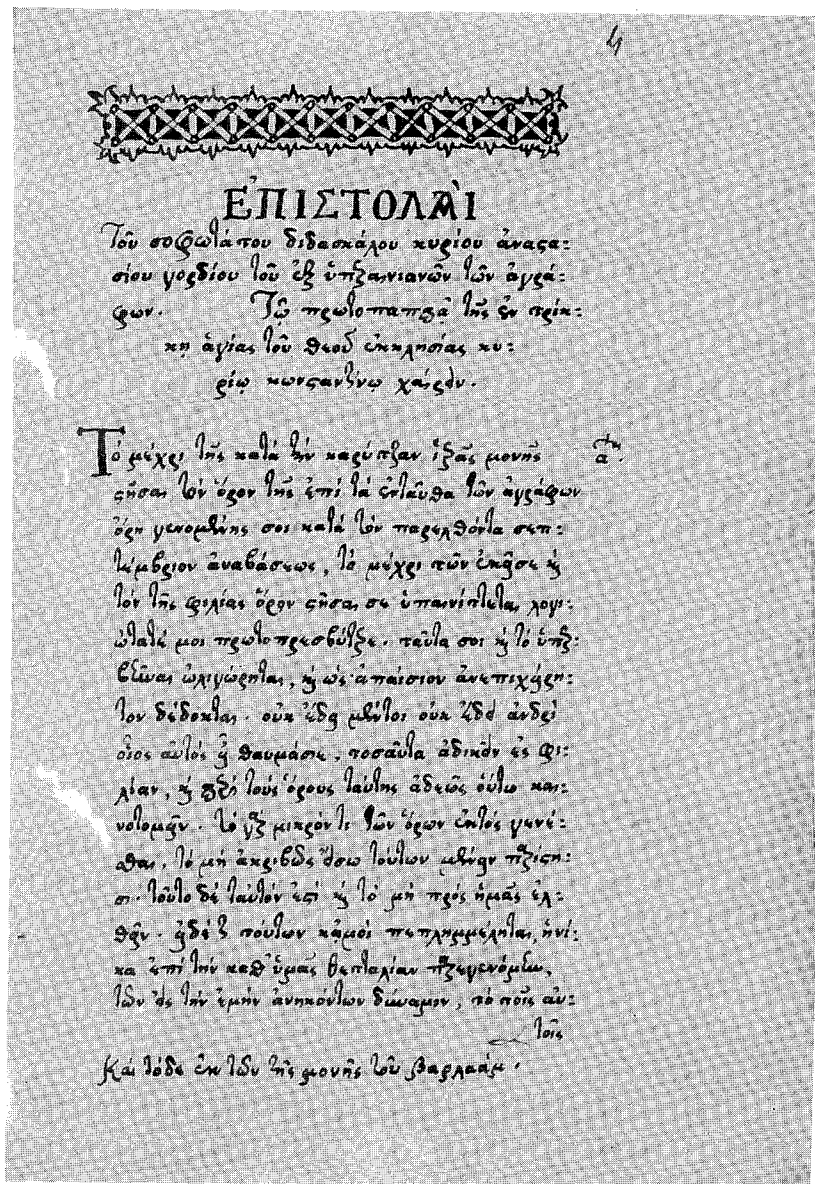 4
ἘΠΙΣΤΟΛΑῚ
Τοῦ σοφωτάτου διδασκάλου κυρίου ἀναστα:
σίου γορδίου τοῦ ἐξ τῶν ἀγρά:
φων. Τῷ πρωτοπαπᾷ τῆς ἐν τρίκ:
κῃ ἁγίας τοῦ θεοῦ ἐκκλησίας κυ:
ρίῳ κωνσταντίνῳ χαίρειν.
Τὸ μέχρι τῆς κατὰ τὴν ἱερᾶς μονῆς
α.
στῆσαι τὸν ὅρον τῆς ἐπὶ τὰ ἐνταῦθα τῶν ἀγράφων
ὄρη γενομένης σοι κατὰ τὸν παρελθόντα σεπ:
τέμβριον ἀναβάσεως, τὸ μέχρι τῶν ἐκεῖσε καὶ
τὸν τῆς φιλίας ὅρον στῆσαί σε ὑπαινίττεται, λογι:
ώτατέ μοι πρωτοπρεσβύτερε. ταῦτα σοι καὶ τὸ ὑπερ:
βῆναι ὠλιγώρηται, καὶ ὡς ἀπαίσιον ἀνεπιχείρη:
τον δέδοκται. οὐκ ἔδει μέντοι οὐκ ἔδει ἀνδρὶ
οἷος αὐτὸς εἶ θαυμάσιε, τοσαῦτα ἀδικεῖν ἐς φι:
λίαν, καὶ περὶ τοὺς ὅρους ταύτης ἀδεῶς οὕτω και:
νοτομεῖν. τὸ γὰρ μικρόν τι τῶν ὅρων ἐκτὸς γενέ:
σθαι, τὸ μὴ ἀκριβῶς εἴσω τούτων μένειν παρίστη:
σι. τοῦτο δὲ ταὐτόν ἐστι καὶ τὸ μὴ πρὸς ἡμᾶς ἐλ:
θεῖν. εἰ δέ τι τούτων κἀμοὶ πεπλημμέληται, ἡνί:
κα ἐπὶ τὴν καθ' ὑμᾶς θετταλίαν παρεγενόμην,
τῶν εἰς τὴν ἐμὴν ἀνηκόντων δύναμιν, τὸ ποῖς αὐ:
τοῖς
Καὶ τόδε ἐκ τῶν τῆς μονῆς τοῦ βαρλαάμ.